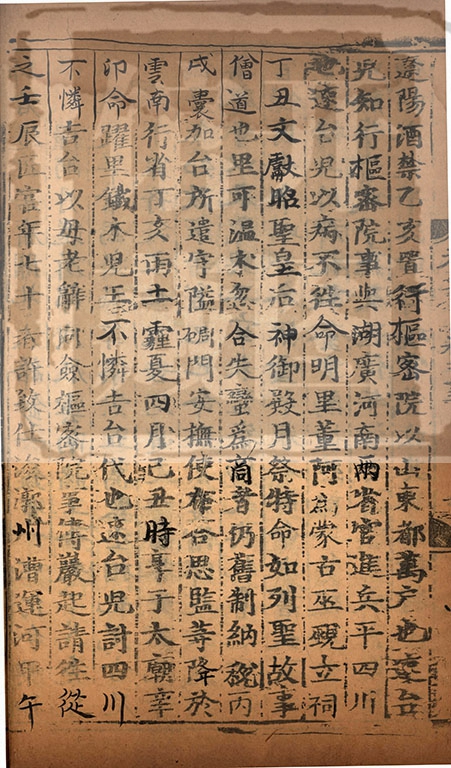 遼陽酒禁乙亥置行樞密院以山東都萬户也速台
兒知行樞密院事與湖廣河南兩省官進兵平四川
也速台兒以病不徃命明里董阿爲蒙古巫覡立祠
丁丑文獻昭聖皇后神御殿月祭特命如列聖故事
僧道也里可温术忽合失蠻爲商者仍舊制納稅丙
戌囊加台所遣守隘碉門安撫使布合思監等降於
雲南行省丁亥雨土霾夏四月己丑時享于太廟辛
卯命躍里鐵木兒王不憐吉台代也速台兒討四川
不憐吉台以母老辭同僉樞密院事傅嚴起請徃從
之壬辰匠官年七十者許致仕浚漷州漕運河甲午